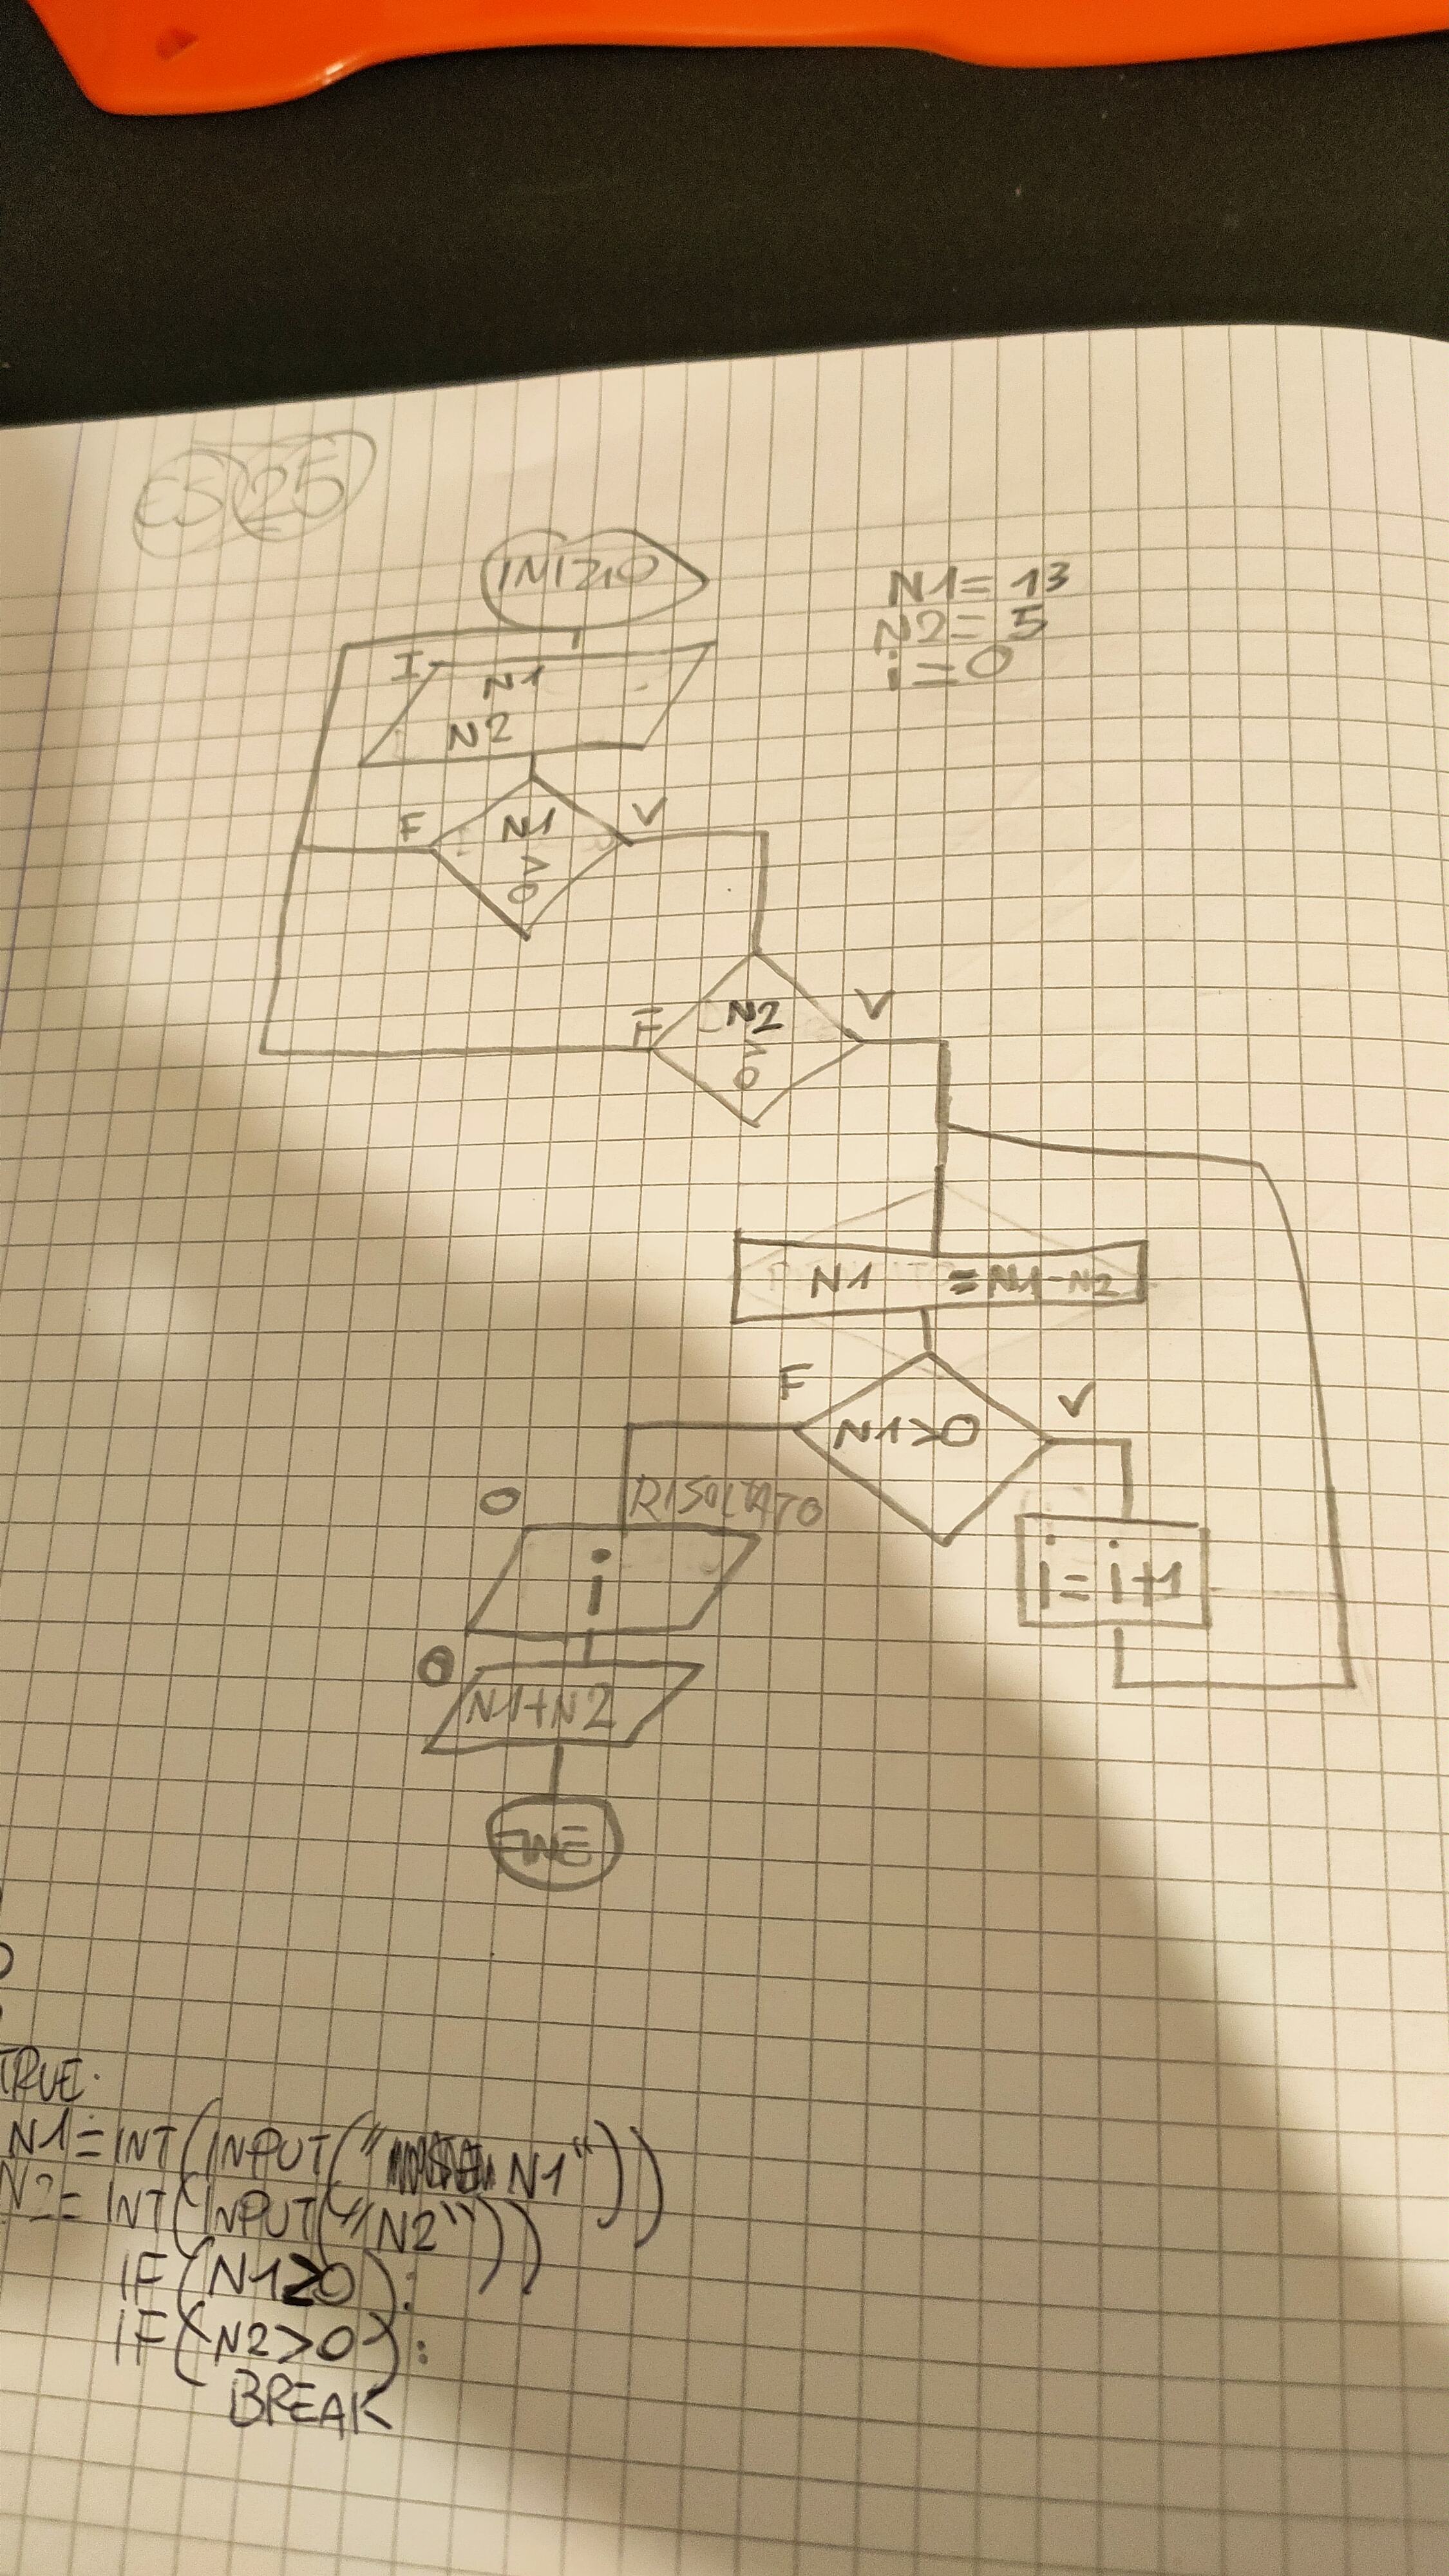 ES 25
INIZIO
N1= 13
N2= 5
i=0
I
N1
N2
F
N1
>
0
V
F
N2
>
0
V
N1 = N1-N2
F
N1>0
V
O
RISOLTATO
i
i=i+1
O
N1+N2
FINE
TRUE:
N1=INT(INPUT(" N1"))
N2=INT(INPUT("N2"))
IF(N1≥0):
IF(N2>0):
BREAK